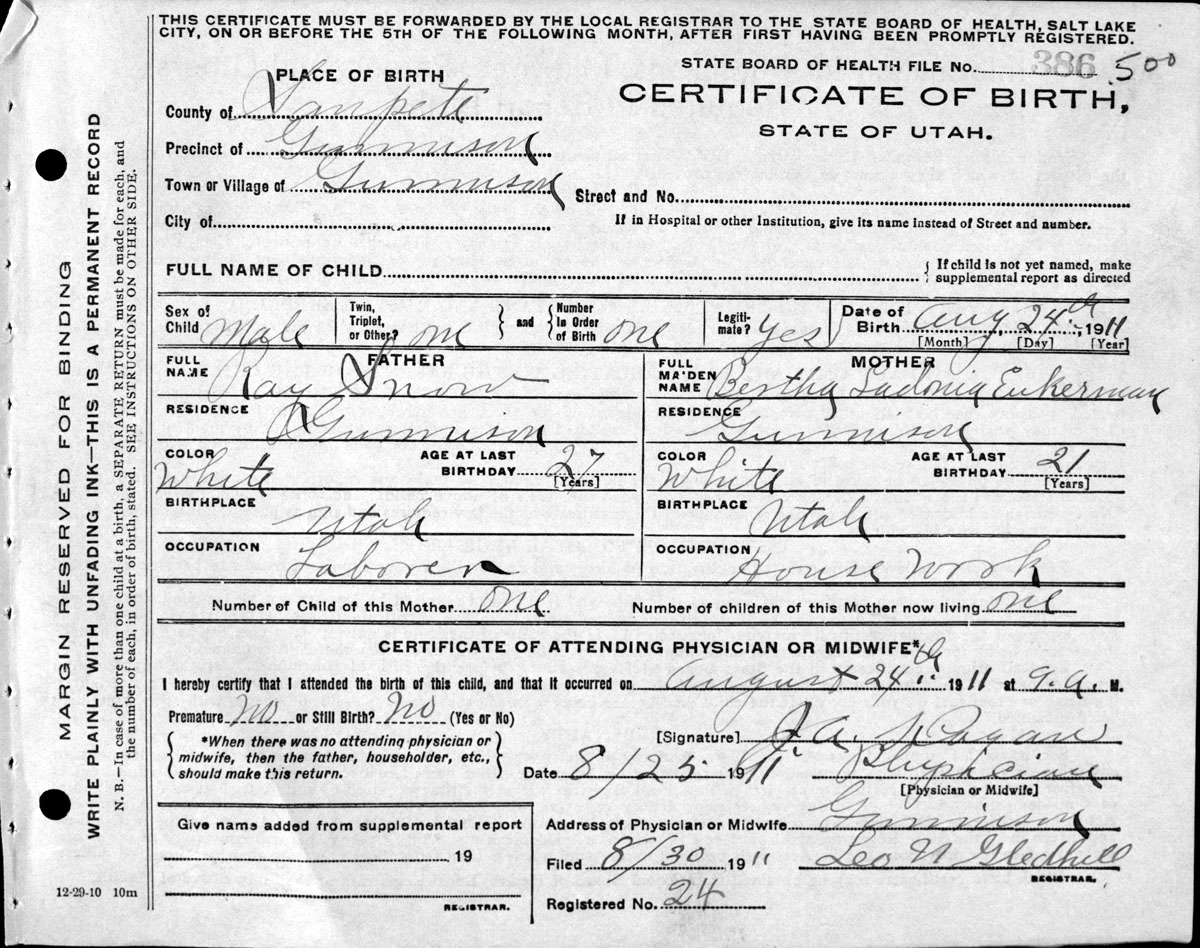 THIS CERTIFICATE MUST BE FORWARDED BY THE LOCAL REGISTRAR TO THE STATE BOARD OF HEALTH, SALT LAKE
CITY, ON OR BEFORE THE 5TH OF THE FOLLOWING MONTH, AFTER FIRST HAVING BEEN PROMPTLY REGISTERED.
STATE BOARD OF HEALTH FILE No. 386 500
PLACE OF BIRTH
CERTIFICATE OF BIRTH,
STATE OF UTAH.
County of Sanpete
Precinct of Gunnison
Town or Village of Gunnison
Street and No.
City of
If in Hospital or other Institution, give its name instead of Street and number.
FULL NAME OF CHILD
{ If child is not yet named, make
supplemental report as directed
Sex of Child Male
Twin, Triplet, or Other? one } and { Number In Order of Birth one
Legiti-mate? Yes
Date of Birth Aug, 24th 1911
[Month] [Day] [Year]
FATHER
FULL NAME Ray Snow
MOTHER
FULL MAIDEN NAME Bertha Ladonia
RESIDENCE Gunnison
RESIDENCE Gunnison
COLOR White AGE AT LAST BIRTHDAY 27 [Years]
COLOR White AGE AT LAST BIRTHDAY 21 [Years]
BIRTHPLACE Utah
BIRTHPLACE Utah
OCCUPATION Laborer
OCCUPATION House Work
Number of Child of this Mother one Number of children of this Mother now living one
CERTIFICATE OF ATTENDING PHYSICIAN OR MIDWIFE*
I hereby certify that I attended the birth of this child, and that it occurred on August 24th 1911 at 9.a. M.
Premature No or Still Birth? No (Yes or No)
{ *When there was no attending physician or
midwife, then the father, householder, etc.,
should make this return. }
[Signature] J. A. Hagan
Date 8/25 1911 Physician
[Physician or Midwife]
Give name added from supplemental report
19
REGISTRAR.
Address of Physician or Midwife Gunnison
Filed 8/30 1911 Leo N Gledhill
REGISTRAR.
Registered No. 24
12-29-10 10m
MARGIN RESERVED FOR BINDING
WRITE PLAINLY WITH UNFADING INK—THIS IS A PERMANENT RECORD
N. B.—In case of more than one child at a birth, a SEPARATE RETURN must be made for each, and
the number of each, in order of birth, stated. SEE INSTRUCTIONS ON OTHER SIDE.